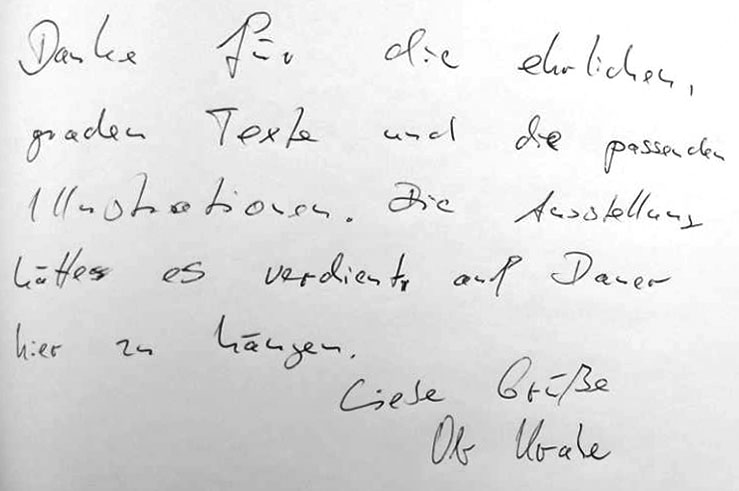 Danke für die ehrlichen,
graden Texte und die passenden
Illustrationen. Die Ausstellung
hätte es verdient, auf Dauer
hier zu hängen.
Liese Grüße